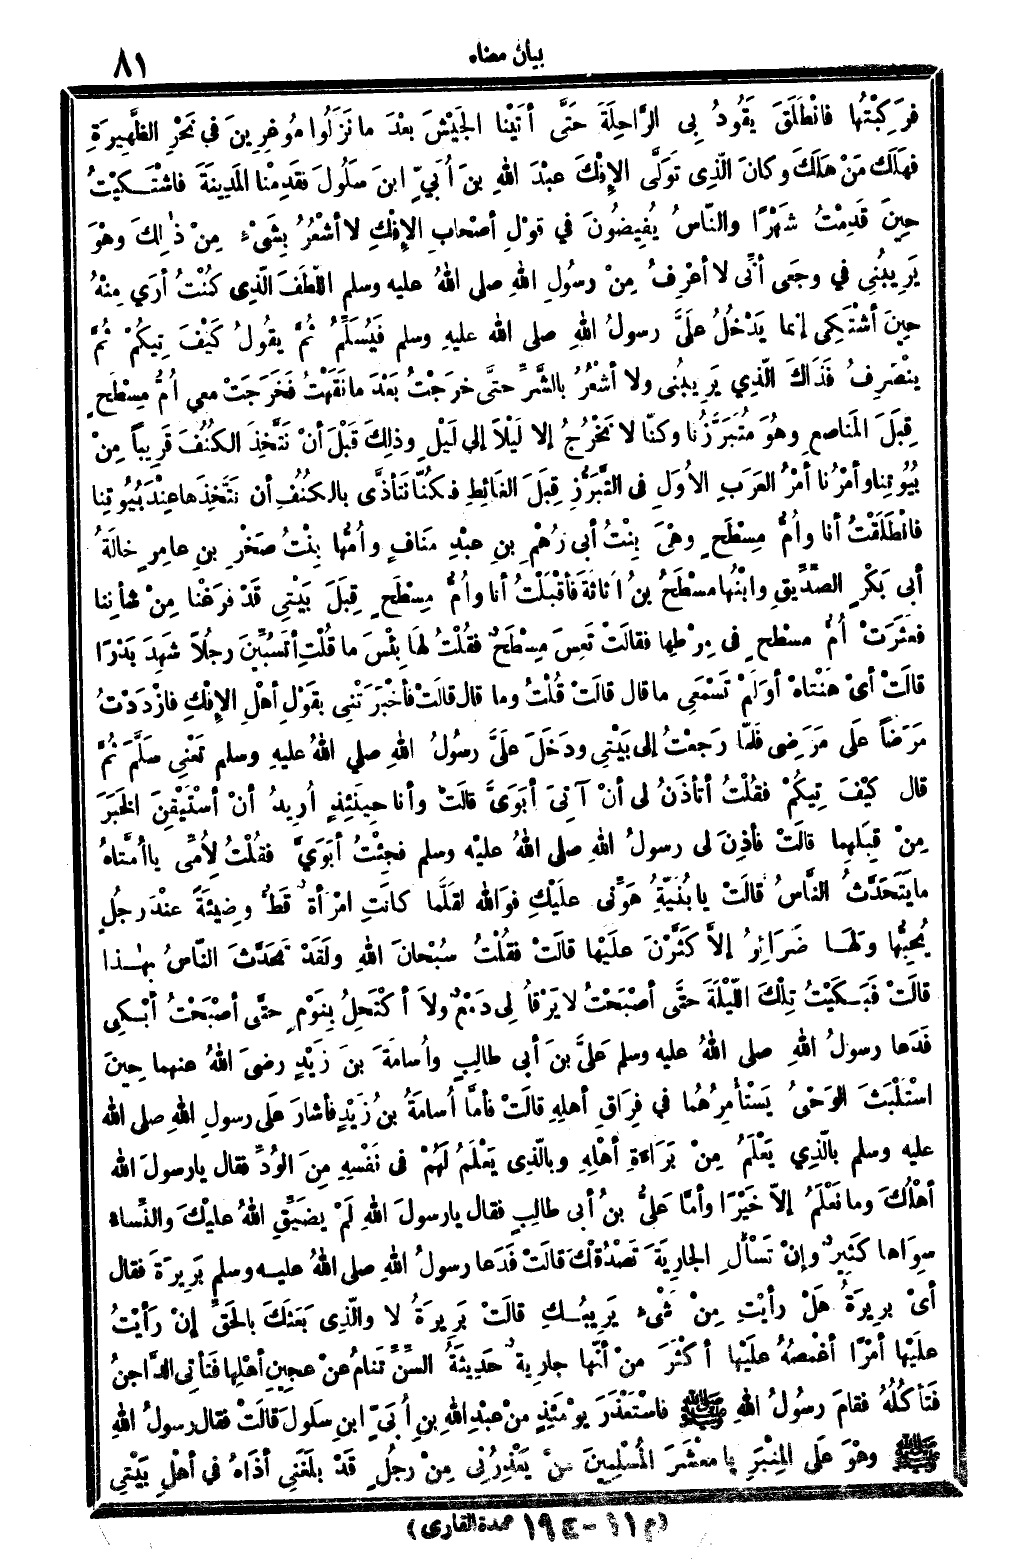 بيان معناه ٨١
فَرَكِبْتُها فانْطَلَقَ يَقُودُ بِى الرَّاحِلَةَ حَتَّى أتَيْنا الجَيْشَ بعْدَ ما نَزَلُوا مُوغِرِينَ في نَحْرِ الظَّهِيرَةِ
فهَلَكَ مَنْ هَلَكَ وكانَ الَّذِى تَوَلَّى الإفْكَ عبْدَ اللهِ بنَ أُبَيٍّ ابنَ سَلُولَ فقَدِمْنا المَدِينَةَ فاشْتَكَيْتُ
حِينَ قَدِمْتُ شَهْرًا والنَّاسُ يُفِيضُونَ في قوْلِ أصْحابِ الإفْكِ لا أشْعُرُ بِشَىْءٍ مِنْ ذٰلِكَ وهْوَ
يَرِيبُنِى في وجَعِى أنِّى لا أعْرِفُ مِنْ رسُولِ اللهِ صلى اللهُ عليه وسلم اللَّطَفَ الَّذِى كُنْتُ أرَي مِنْهُ
حِينَ أشْتَكِى إنما يَدْخُلُ علَىَّ رسولُ اللهِ صلى الله عليهِ وسلم فَيُسَلِّمُ ثُمَّ يقُولُ كَيْفَ تِيكُمْ ثُمَّ
ينْصَرِفُ فَذَاكَ الَّذِي يَرِيبُنى ولا أشْعُرُ بالشَّرِّ حتَّى خرَجْتُ بعْدَ ما نَقَهْتُ فَخَرَجَتْ معي أُمُّ مِسْطَحٍ
قِبَلَ المَناصِعِ وهُوَ مُتَبَرَّزُنا وكنَّا لا نَخْرُجُ إلا لَيْلًا إلى لَيْلٍ وذلِكَ قَبْلَ أنْ نَتَّخِذَ الكُنُفَ قَرِيباً مِنْ
بُيُوتِنا وأمْرُنا أمْرُ العَرَبِ الأُوَلِ فى التَّبَرُّزِ قِبَلَ الغائِطِ فكُنَّا نَتأذَّى بالكُنُفِ أن نَتَّخِذَها عِنْدَ بُيُوتِنا
فانْطَلَقْتُ أنا وأُمُّ مِسْطَحٍ وهْىَ بِنْتُ أبى رُهْمِ بنِ عبْدِ مَنافٍ وأُمُّها بِنْتُ صَخْرِ بنِ عامِرٍ خالَةُ
أبى بَكْرٍ الصِّدِّيقِ وابْنُها مسْطَحُ بنُ أُثاثَةَ فأقْبَلْتُ أنا وأُمُّ مِسْطَحٍ قِبَلَ بَيْتِى قَدْ فرَغْنا مِنْ شأنِنا
فعَثَرَتْ أُمُّ مسْطَحٍ فى مِرْطِها فقالَتْ تَعِسَ مِسْطَحٌ فقُلْتُ لهَا بِئْسَ ما قُلْتِ أتَسُبِّينَ رجُلًا شَهِدَ بَدْرًا
قالَتْ أىْ هَنْتاهْ أوَلَمْ تَسْمَعِى ما قال قالَتْ قُلْتُ وما قال قالَتْ فأخْبَرَتْنِى بقَوْلِ أهْلِ الإفْكِ فازْدَدْتُ
مَرَضاً علَى مَرَضِى فلَمَّا رجَعْتُ إلى بَيْتِى ودَخَلَ علَىَّ رسُولُ اللهِ صلي اللهُ عليهِ وسلم تَعْنِى سَلَّمَ ثُمَّ
قال كَيْفَ تِيكُمْ فقُلْتُ أتأذَنُ لى أنْ آتِىَ أبَوَىَّ قالَتْ وأنا حِينَئِذٍ أُرِيدُ أنْ أسْتَيْقِنَ الخَبَرَ
مِنْ قِبَلِهِما قالَتْ فأذِنَ لى رسولُ اللهِ صلى اللهُ عليْه وسلم فجِئْتُ أبَوَيَّ فقُلْتُ لِأُمِّى ياأُمَّتاهْ
ما يَتَحَدَّثُ النَّاسُ قالَتْ يا بُنَيَّةُ هَوِّنِى علَيْكِ فوَاللهِ لقَلَّما كانَتِ امْرَأةٌ قَطُّ وضِيئَةً عنْدَ رجُلٍ
يُحِبُّها ولهَا ضَرَائِرُ إلاَّ كَثَّرْنَ علَيْها قالَتْ فقُلْتُ سُبْحانَ اللهِ ولَقَدْ تحَدَّثَ النَّاسُ بهٰذا
قالَتْ فَبَكَيْتُ تِلْكَ اللَّيْلَةَ حتَّى أصْبَحْتُ لا يَرْقأُ لِى دَمْعٌ ولاَ أكْتَحِلُ بِنَوْمٍ حتَّى أصْبَحْتُ أبْكِى
فَدَعا رسولُ اللهِ صلى اللهُ عليه وسلم عَلِيَّ بنَ أبى طالِبٍ وأُسامَةَ بنَ زَيْدٍ رضىَ اللهُ عنهما حِينَ
اسْتَلْبَثَ الوَحْىُ يَسْتأْمِرُهُما في فِرَاقِ أهلِهِ قالَتْ فأمَّا أُسامَةُ بنُ زَيْدٍ فأشارَ علَى رسولِ اللهِ صلى الله
عليه وسلم بالَّذِي يَعْلَمُ مِنْ بَرَاءَةِ أهْلِهِ وبالَّذِى يَعْلَمُ لَهُمْ فى نَفْسِهِ مِنَ الوُدِّ فقال يارسولَ الله
أهْلُكَ وما نَعْلَمُ إلاَّ خَيْرًا وأمَّا عَلىُّ بنُ أبى طالِبٍ فقال يارسولَ اللهِ لَمْ يضَيِّقِ اللهُ عليْكَ والنِّساءُ
سِوَاها كَثِيرٌ وإنْ تَسْألِ الجارِيَةَ تَصْدُقْكَ قالَتْ فَدَعا رسولُ اللهِ صلى اللهُ عليه وسلم بَرِيرَةَ فقال
أىْ بريرَةُ هَلْ رأيْتِ مِنْ شَىْءٍ يَرِيبُكِ قالَتْ بَرِيرَةُ لا والَّذِى بَعَثَكَ بالحَقِّ إنْ رَأيْتُ
علَيْها أمْرًا أغْمِصُهُ علَيْها أكْثَرَ منْ أنَّها جارِيةٌ حَدِيثَةُ السِّنِّ تَنامُ عنْ عجِينِ أهْلِها فَتأْتى الدَّاجِنُ
فَتأكُلُهُ فقامَ رسُولُ اللهِ ﷺ فاسْتَعْذَرَ يوْمَئِذٍ منْ عبْدِ اللهِ بنِ أُبَيٍّ ابنِ سلولَ قالَتْ فقال رسولُ اللهِ
ﷺ وهْوَ علَى المِنْبَرِ يا معْشَرَ المُسْلِمِينَ مَنْ يَعْذِرُنِى مِنْ رجُلٍ قَدْ بلَغَنِى أذَاهُ في أهْلِ بَيْتِى
(م ١١ - ١٩ ج عمدة القارى)